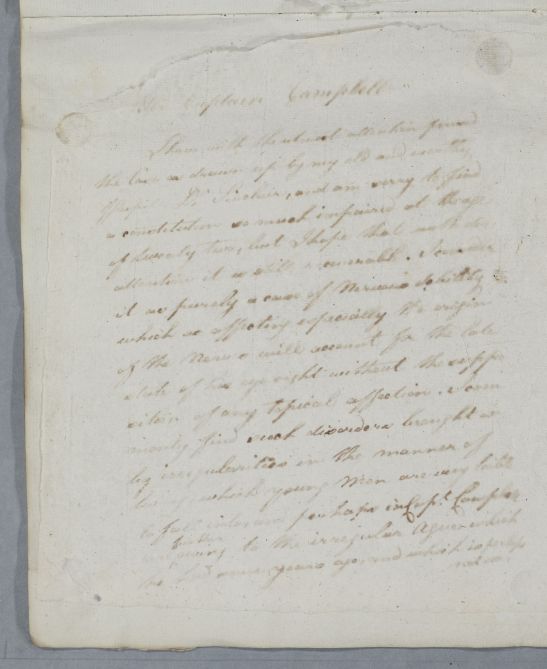 For Captain Campbell
I have with the utmost attention perused
the Case as drawn up by my old and worthy
friend Dr and am sorry to find
a constitution so much impaired at the age
of twenty two, but I hope that with due
attention it is still recoverable. I consider
it as purely a case of Nervous debility
which as affecting especially the origin
of the Nerves will account for the late
state of his eye sight without the suppo
sition of any topical affection. I com
monly find such disorders brought on
by irregularities in the manner of
living which young Men are very liable
to fall into, and perhaps in Capt. Campbell
further owing to the irregular Agues which
he had some years ago, and which is perhaps